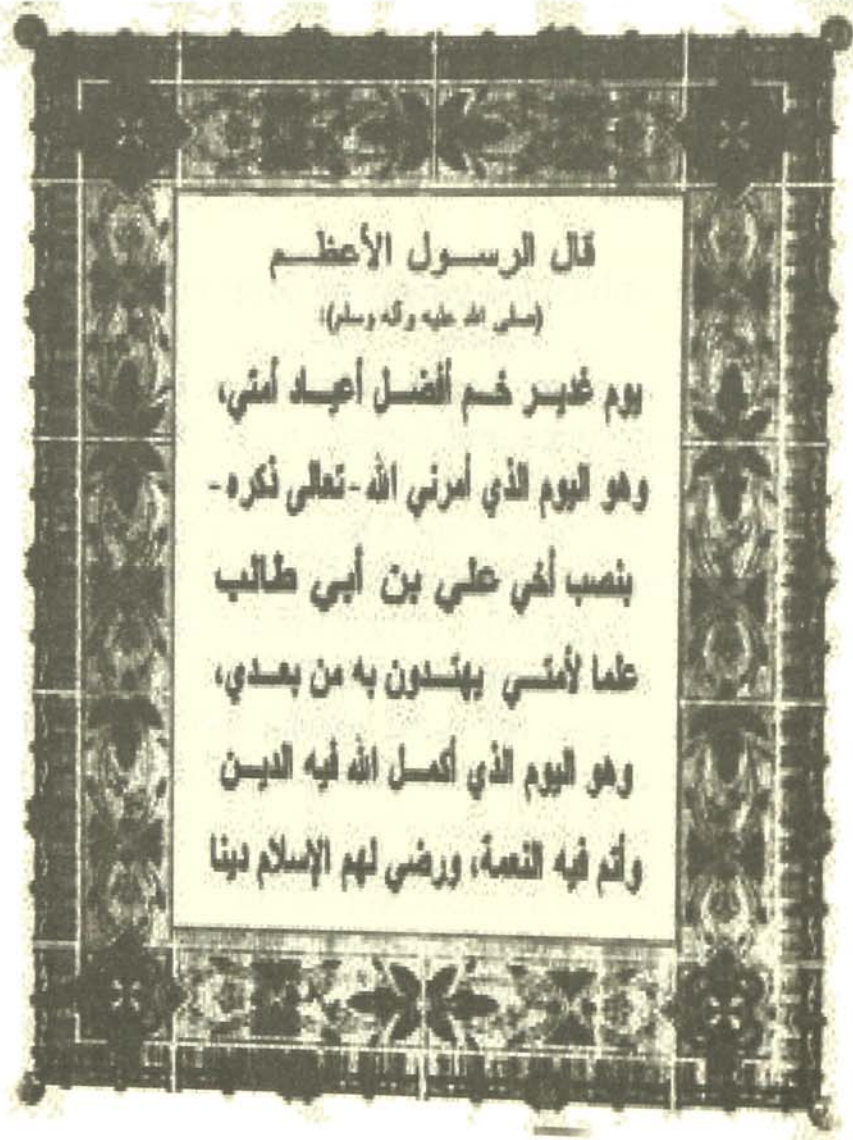 قال الرســول الأعظــم
(صلى الله عليه وآله وسلم):
يوم غديـر خـم أفضـل أعيـاد أمتي،
وهو اليوم الذي أمرني الله -تعالى ذكره-
بنصب أخي علي بن أبي طالب
علما لأمتــي يهتــدون به من بعــدي،
وهو اليوم الذي أكمــل الله فيه الديــن
وأتم فيه النعمة، ورضي لهم الإسلام دينا